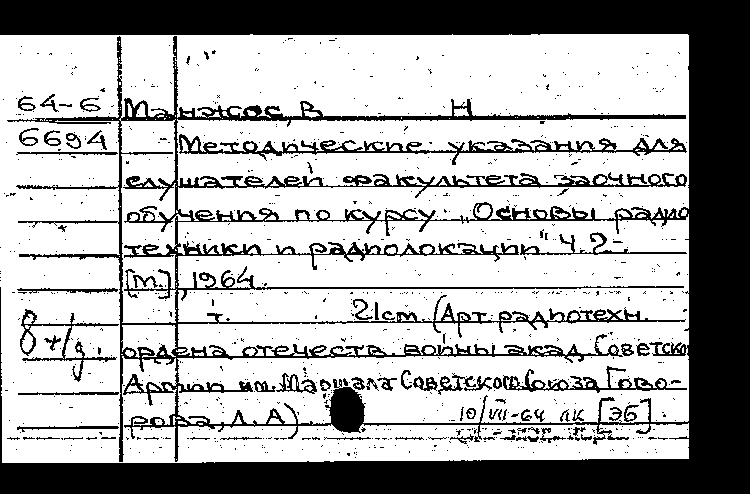 64-6 Манжос, В Н
6694 Методические указания для
слушателей факультета заочного
обучения по курсу „Основы радио
техники и радиолокации" Ч.2-.
[М.], 1964.
т. 21см. (Арт. радиотехн.
8 +/д. ордена отечеств. войны акад. Советско
Армии им. Маршала Советского Союза Гово-
рова, Л. А) 10/VII-64 лк [ЭБ].